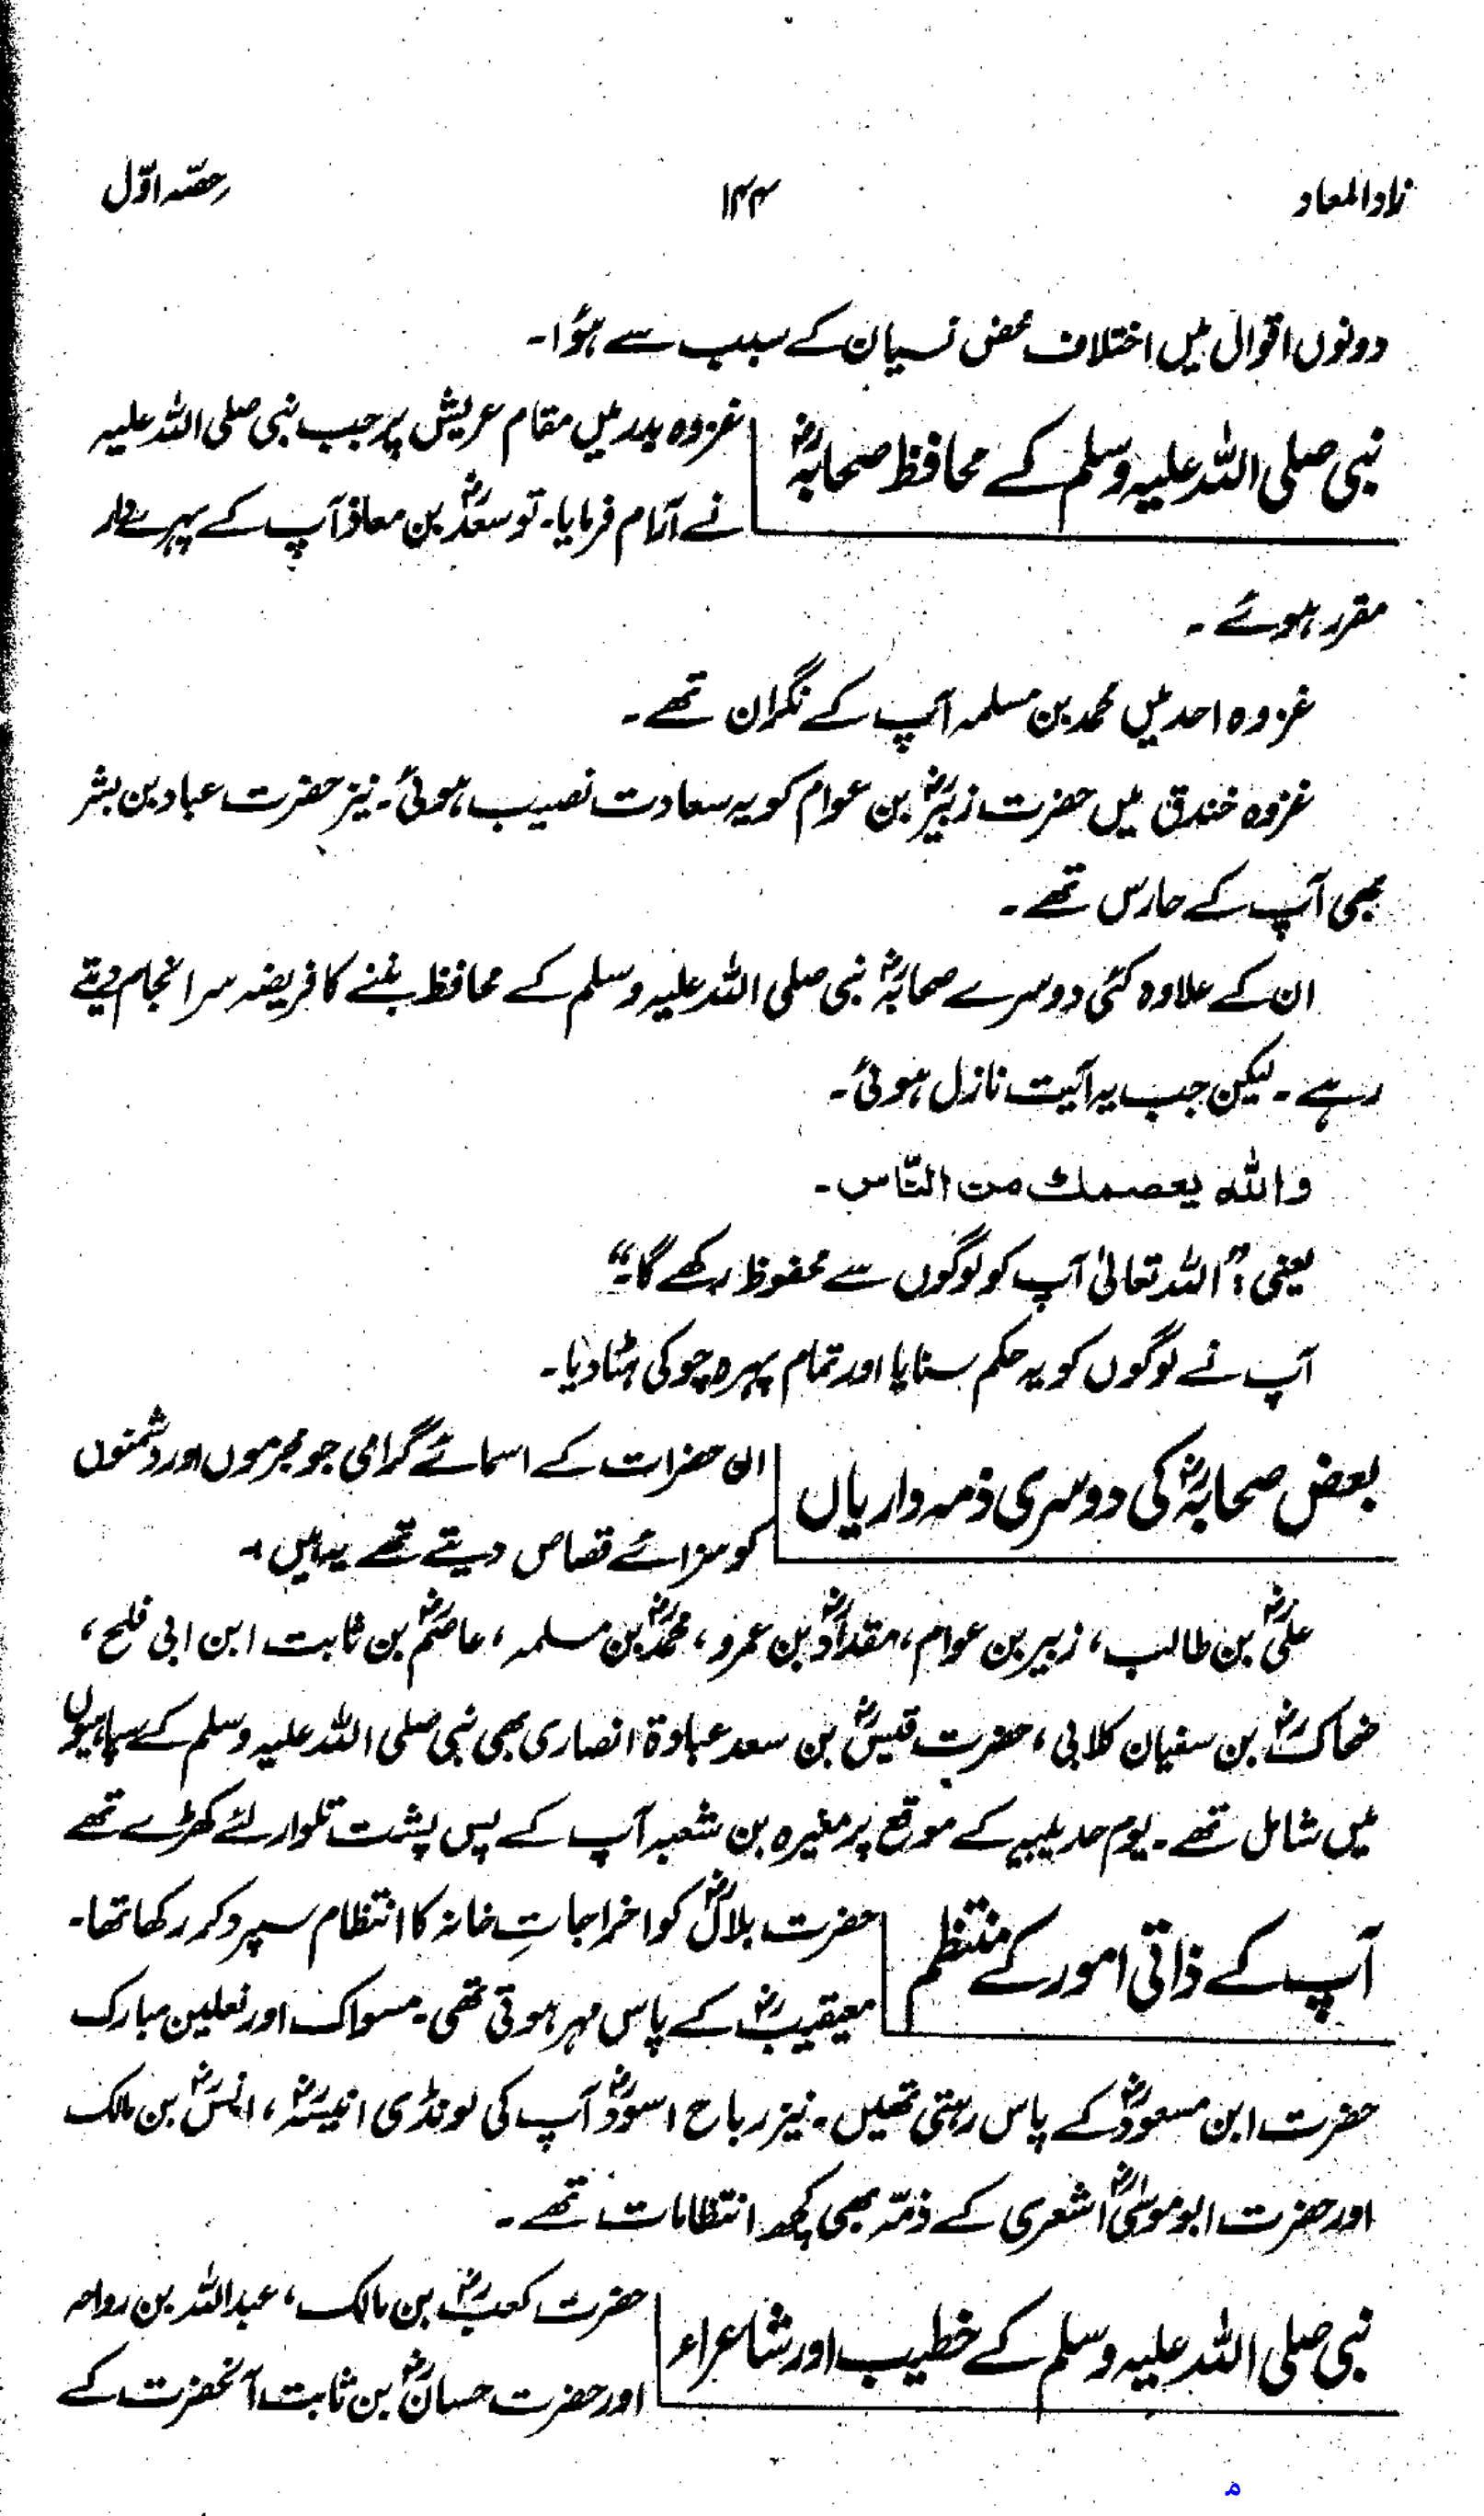 زادالمعاد
۱۴۴
حصّہ اوّل
دونوں اقوال میں اختلاف محض نسیان کے سبب سے ہوٗا۔
نبی صلی اللہ علیہ وسلم کے محافظ صحابہؓ
غزوہ بدر میں مقام عریش پر جب نبی صلی اللہ علیہ
نے آرام فرمایا۔ تو سعدؓ بن معاذ آپ کے پہرے دار
مقرر ہوئے ۔
غزوہ احد میں محمد بن مسلمہ آپ کے نگران تھے ۔
غزوہ خندق میں حضرت زبیرؓ بن عوام کو یہ سعادت نصیب ہوئی۔ نیز حضرت عباد بن بشر
بھی آپ کے حارس تھے ۔
ان کے علاوہ کئی دوسرے صحابہؓ نبی صلی اللہ علیہ وسلم کے محافظ بننے کا فریضہ سرانجام دیتے
رہے ۔ لیکن جب یہ آیت نازل ہوئی۔
واللہ یعصمك من النّاس ۔
یعنی :" اللہ تعالیٰ آپ کو لوگوں سے محفوظ رکھے گا۔"
آپ نے لوگوں کو یہ حکم سنایا اور تمام پہرہ چوکی ہٹا دیا۔
بعض صحابہؓ کی دوسری ذمہ داریاں
ان حضرات کے اسمائے گرامی جو مجرموں اور دشمنوں
کو سزائے قصاص دیتے تھے یہ ہیں ۔
علیؓ بن طالب، زبیر بن عوام، مقدادؓ بن عمرو، محمدؓ بن مسلمہ، عاصمؓ بن ثابت ابن ابی فلح،
ضحاکؓ بن سفیان کلابی، حضرت قیسؓ بن سعد عبادۃ انصاری بھی نبی صلی اللہ علیہ وسلم کے سپاہیوں
میں شامل تھے ۔ یوم حدیبیہ کے موقع پر مغیرہ بن شعبہ آپ کے پس پشت تلوار لئے کھڑے تھے
آپ کے ذاتی امور کے منتظم
حضرت بلالؓ کو اخراجاتِ خانہ کا انتظام سپرد کر رکھا تھا۔
معیقیبؓ کے پاس مہر ہوتی تھی۔ مسواک اور نعلین مبارک
حضرت ابن مسعودؓ کے پاس رہتی تھیں ۔ نیز رباح اسودؓ آپ کی لونڈی انیسہؓ، انسؓ بن مالک
اور حضرت ابو موسیٰؓ اشعری کے ذمّہ بھی کچھ انتظامات تھے ۔
نبی صلی اللہ علیہ وسلم کے خطیب اور شاعراء
حضرت کعبؓ بن مالک، عبداللہ بن رواحہ
اور حضرت حسانؓ بن ثابت آنحضرت کے
م